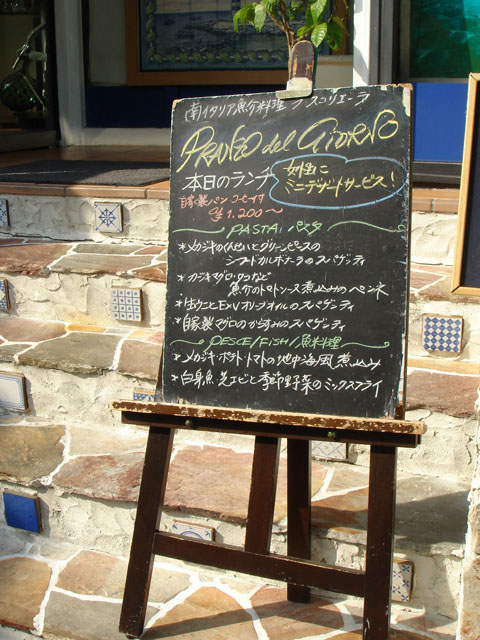 南イタリア魚介料理 ラ スコリエーラ
PRANZO del GIORNO
本日のランチ
女性に
ミニデザートサービス!
自家製パン コーヒー付
¥1.200〜
PASTA パスタ
*メカジキのくんせいとグリーンピースの
シーフードカルボナーラのスパゲッティ
*カジキマグロ・タコなど
魚介のトマトソース煮込みのペンネ
*生ウニとExvオリーブオイルのスパゲッティ
*自家製マグロのからすみのスパゲッティ
PESCE/FISH/魚料理
*メカジキ・ポテト・トマトの地中海風煮込み
*白身魚 芝エビと季節野菜のミックスフライ